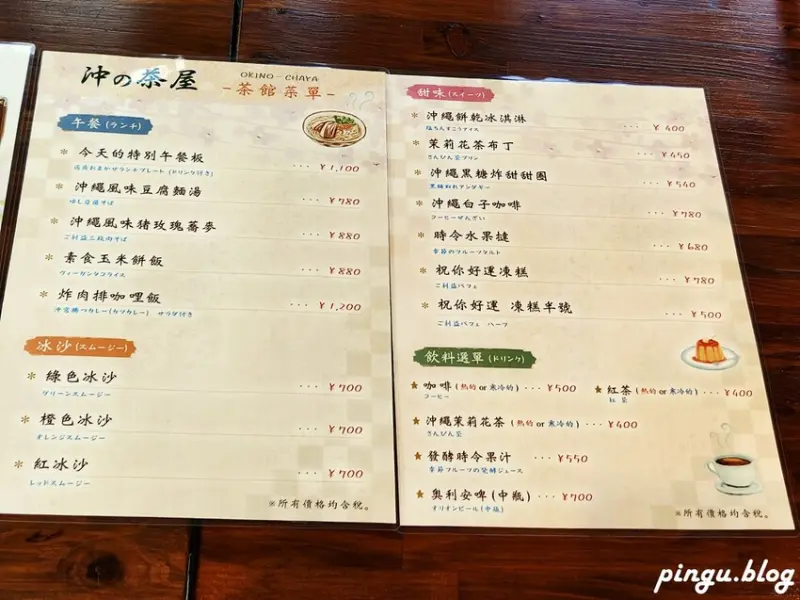 沖の茶屋
OKINO-CHAYA
-茶館菜單-
午餐(ランチ)
* 今天的特別午餐板 ... ￥1,100
店長おまかせランチプレート(ドリンク付き)
* 沖繩風味豆腐麵湯 ... ￥780
ゆし豆腐そば
* 沖繩風味猪玫瑰蕎麥 ... ￥880
ご利益三枚肉そば
* 素食玉米餅飯 ... ￥880
ヴィーガンタコライス
* 炸肉排咖哩飯 ... ￥1,200
沖宮勝つカレー(カツカレー) サラダ付き
冰沙(スムージー)
* 綠色冰沙 ... ￥700
グリーンスムージー
* 橙色冰沙 ... ￥700
オレンジスムージー
* 紅冰沙 ... ￥700
レッドスムージー
※所有價格均含稅。
甜味(スイーツ)
* 沖繩餅乾冰淇淋 ... ￥400
塩ちんすこうアイス
* 茉莉花茶布丁 ... ￥450
さんぴん茶プリン
* 沖繩黑糖炸甜甜圈 ... ￥540
黒糖アンダギー
* 沖繩白子咖啡 ... ￥780
コーヒーぜんざい
* 時令水果撻 ... ￥680
季節のフルーツタルト
* 祝你好運凍糕 ... ￥780
ご利益パフェ
* 祝你好運 凍糕半號 ... ￥500
ご利益パフェ ハーフ
飲料選單(ドリンク)
★ 咖啡(熱的or寒冷的) ... ￥500
コーヒー
★ 紅茶(熱的or寒冷的) ... ￥400
紅茶
★ 沖繩茉莉花茶(熱的or寒冷的) ... ￥400
さんぴん茶
★ 發酵時令果汁 ... ￥550
季節フルーツの発酵ジュース
★ 奧利安啤(中瓶) ... ￥700
オリオンビール(中瓶)
※所有價格均含稅。
pingu.blog